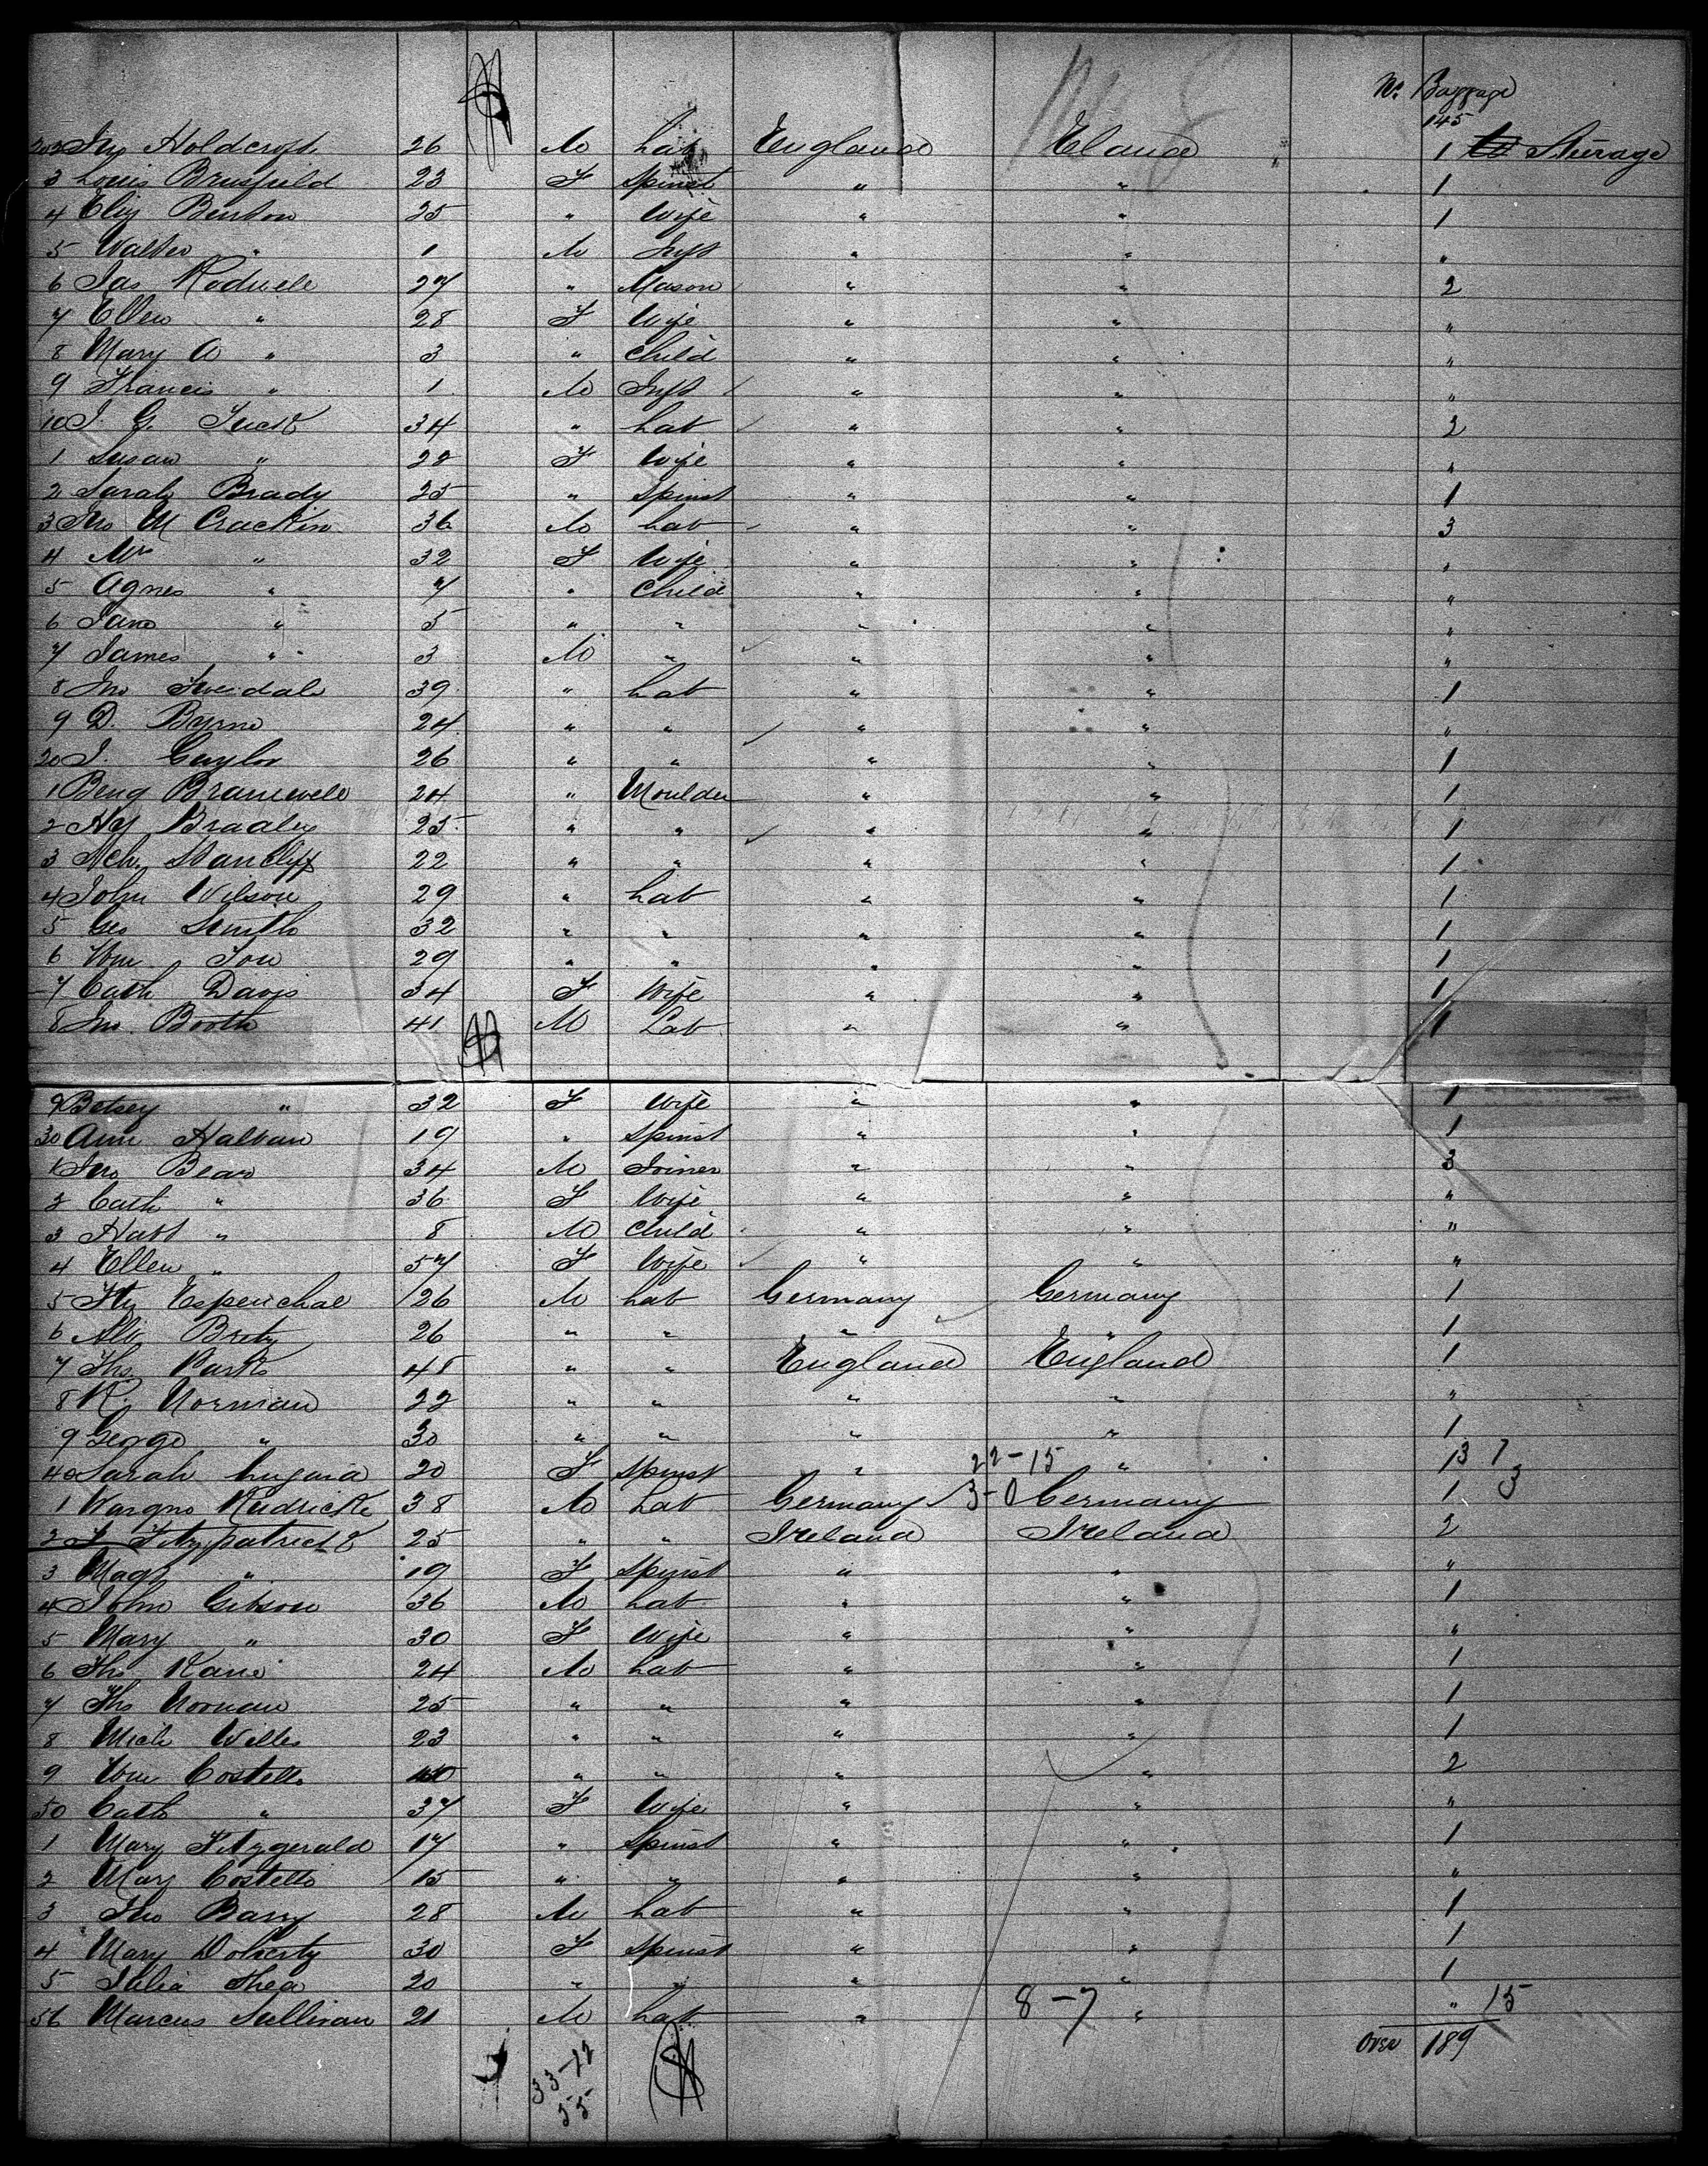 No. Baggage
145
202 Jno Holdcroft 26 M Lab England Eland 1 Steerage
3 Louis Brusfield 23 F Spinst " " 1
4 Eliz Benton 25 " Wife " " 1
5 Walter " 1 M Inft " " "
6 Jas Rodwell 27 " Mason " " 2
7 Ellen " 28 F Wife " " "
8 Mary A " 3 " Child " " "
9 Francis " 1 M Inft " " "
10 J. G. Tuck 34 " Lab " " 2
1 Susan " 28 F Wife " " "
2 Sarah Brady 25 " Spinst " " 1
3 Jno McCrackin 36 M Lab " " 3
4 Mrs " 32 F Wife " " "
5 Agnes " 7 " Child " " "
6 Jane " 5 " " " " "
7 James " 3 M " " " "
8 Jno Twedale 39 " Lab " " 1
9 D. Byrne 24 " " " " "
20 J. Gaylor 26 " " " " 1
1 Benj Bramwell 24 " Moulder " " 1
2 Hy Bradley 25 " " " " 1
3 Stancliff 22 " " " " 1
4 John Wilson 29 " Lab " " 1
5 Geo Smith 32 " " " " 1
6 Wm 29 " " " " 1
7 Cath Davis 34 F Wife " " 1
8 Jno. Booth 41 M Lab " " 1
9 Betsey " 32 F Wife " " 1
30 Ann Halban 19 " Spinst " " 1
1 Jno 34 M Joiner " " 3
2 Cath " 36 F Wife " " "
3 " 8 M Child " " "
4 Ellen " 57 F Wife " " "
5 Hy Espenchal 26 M Lab Germany Germany 1
6 26 " " " " 1
7 Ths. Parks 48 " " England England 1
8 R. Norman 22 " " " " "
9 George " 30 " " " " 1
40 Sarah 20 F Spinst " 22-15 " 1 37
1 38 M Lab Germany 3-0 Germany 1 3
2 Fitzpatrick 25 " " Ireland Ireland 2
3 Magt " 19 F Spinst " " "
4 John Gibson 36 M Lab " " 1
5 Mary " 30 F Wife " " "
6 Ths Kane 24 M Lab " " 1
7 Ths Noonan 25 " " " " 1
8 Mich Willis 23 " " " " 1
9 Wm Costello 40 " " " " 2
50 Cath " 37 F Wife " " "
1 Mary Fitzgerald 17 " Spinst " " 1
2 Mary Costello 15 " " " " "
3 Jno Barry 28 M Lab " " 1
4 Mary Doherty 30 F Spinst " " 1
5 Julia Shea 20 " " " " 1
56 Marcus Sullivan 21 M Lab " 8-7 " " 15
over 189
33-12
55